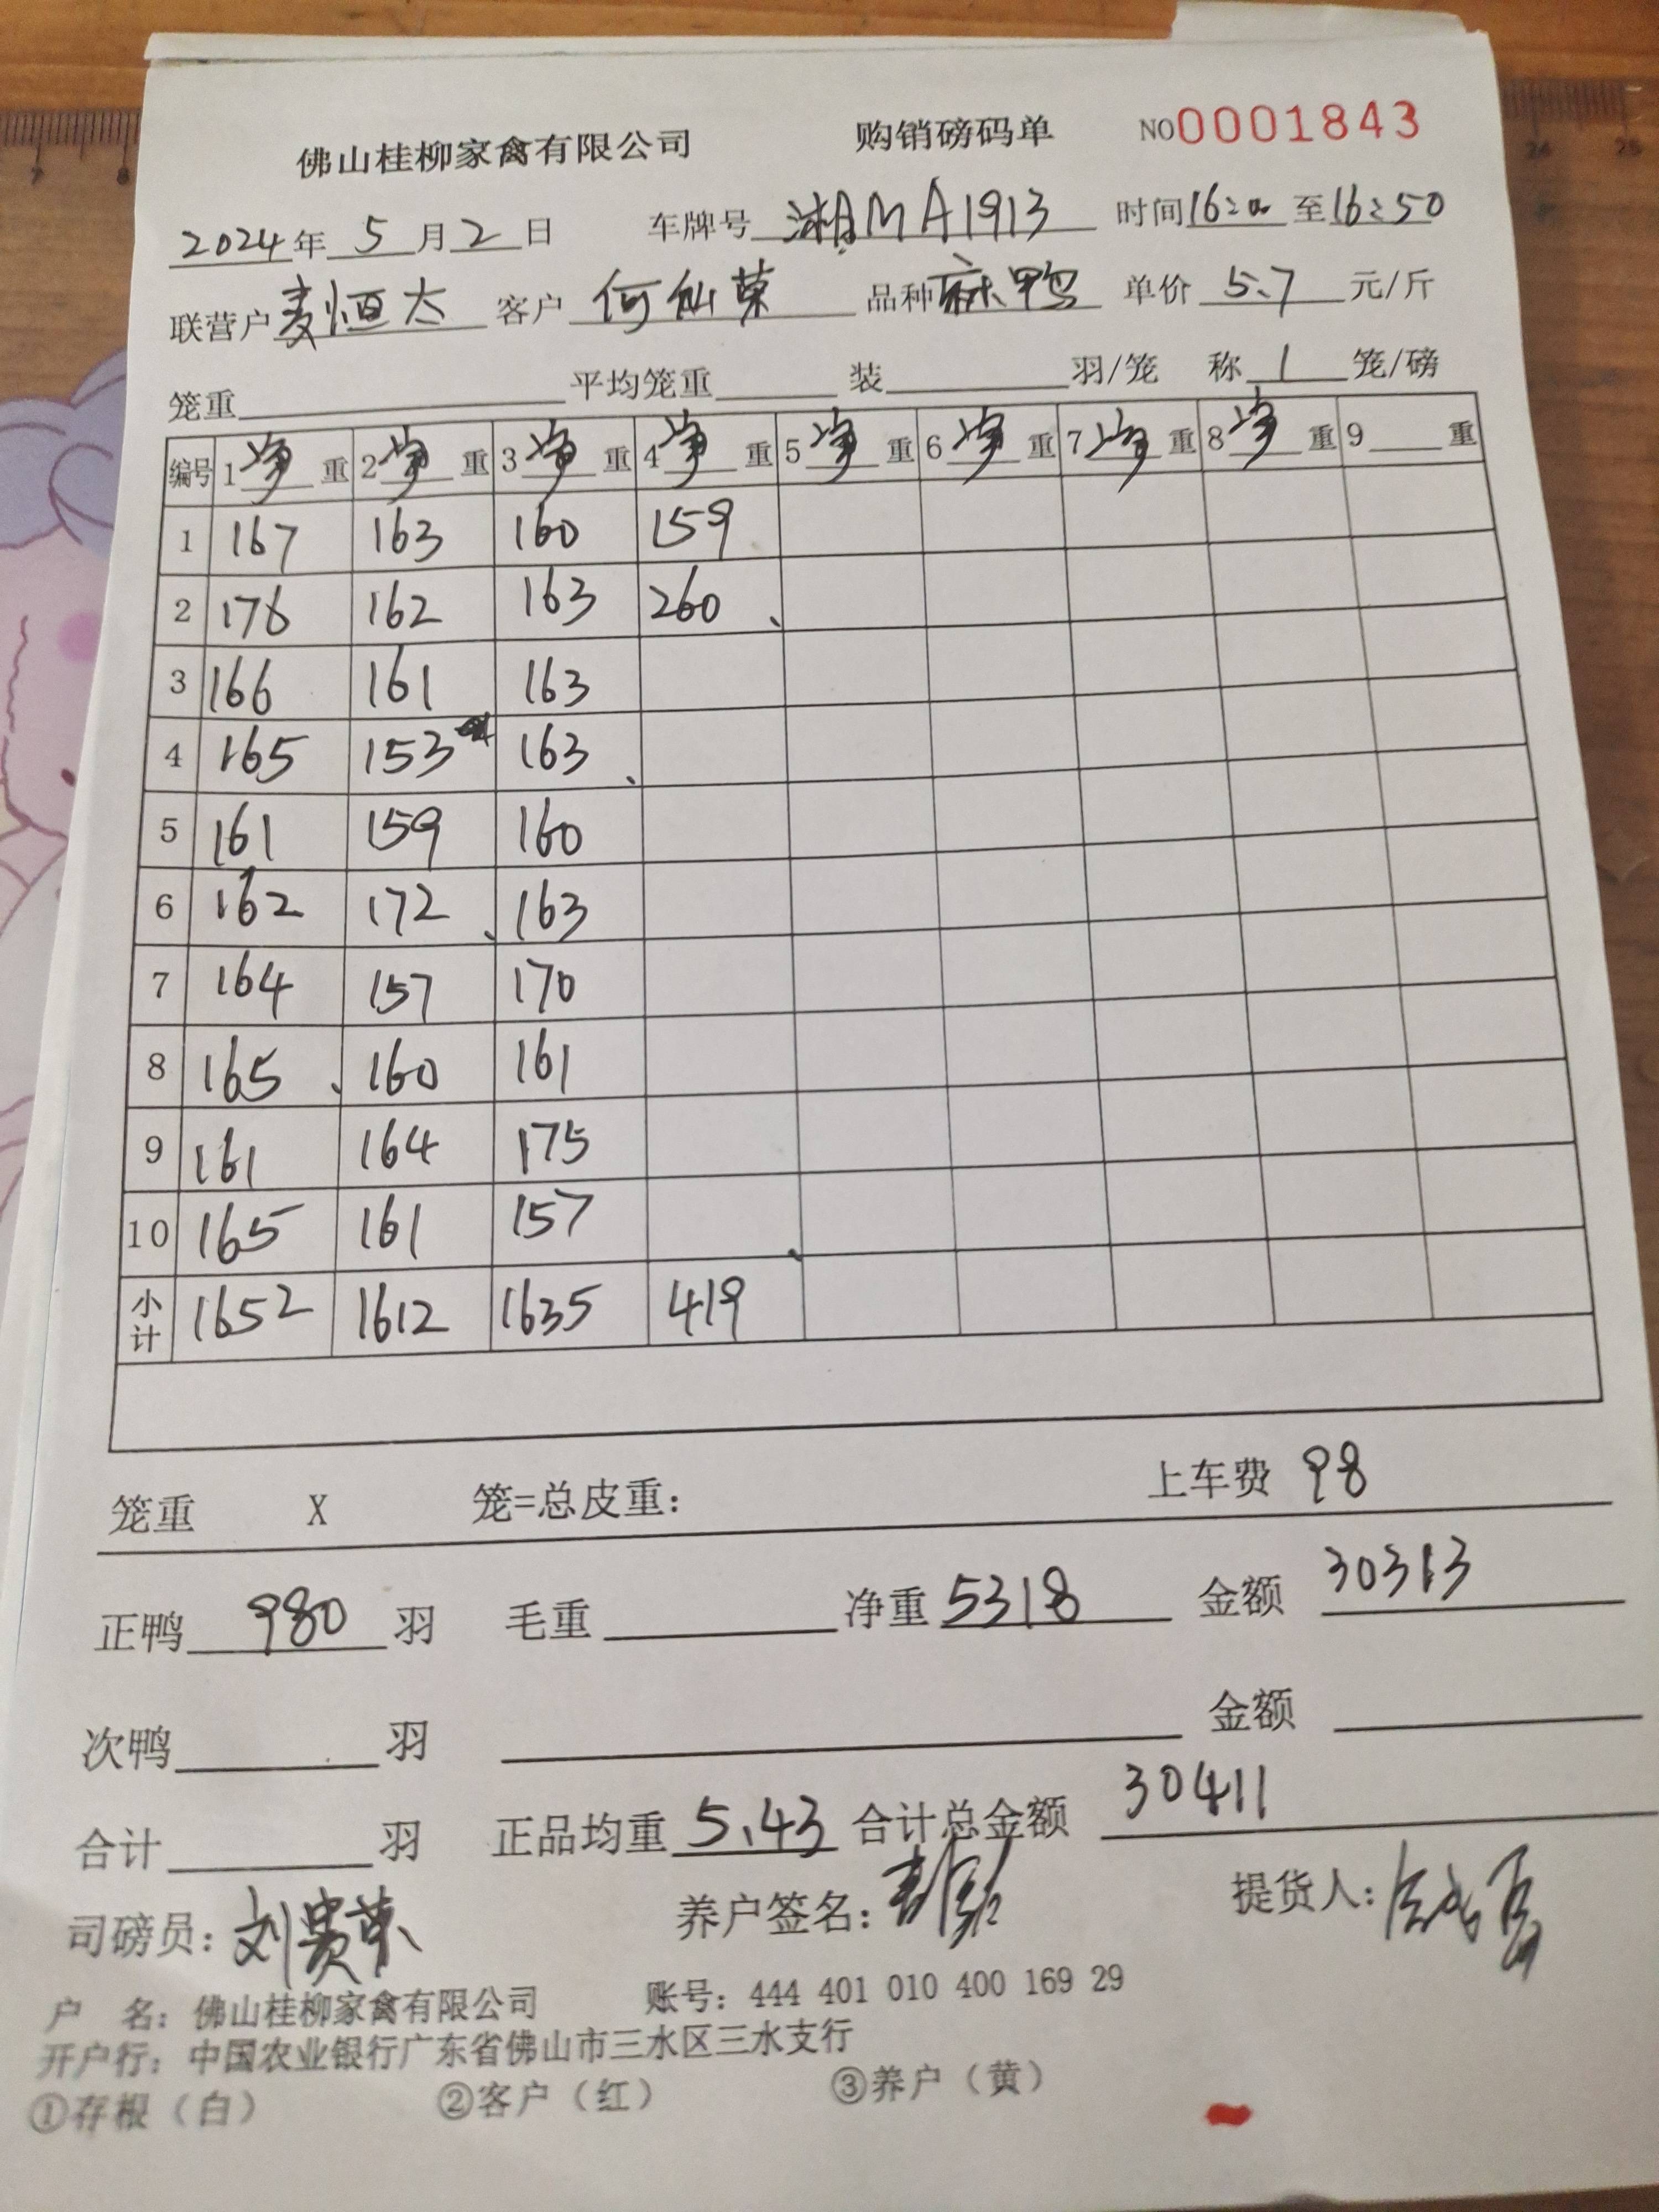 佛山桂柳家禽有限公司 购销磅码单 NO0001843
2024年 5 月 2 日 车牌号 湘MA1913 时间16:00 至16:50
联营户 麦恒太 客户 何仙荣 品种 麻鸭 单价 5.7 元/斤
笼重 平均笼重 装 羽/笼 称 1 笼/磅
编号 1净重 2净重 3净重 4净重 5净重 6净重 7净重 8净重 9 重
1 167 163 160 159
2 176 162 163 260
3 166 161 163
4 165 153 163
5 161 159 160
6 162 172 163
7 164 157 170
8 165 160 161
9 161 164 175
10 165 161 157
小计 1652 1612 1635 419
笼重 X 笼=总皮重: 上车费 98
正鸭 980 羽 毛重 净重 5318 金额 30313
次鸭 羽 金额
合计 羽 正品均重 5.43 合计总金额 30411
司磅员: 刘贵荣 养户签名: 提货人:
户 名: 佛山桂柳家禽有限公司 账号: 444 401 010 400 169 29
开户行: 中国农业银行广东省佛山市三水区三水支行
①存根（白） ②客户（红） ③养户（黄）